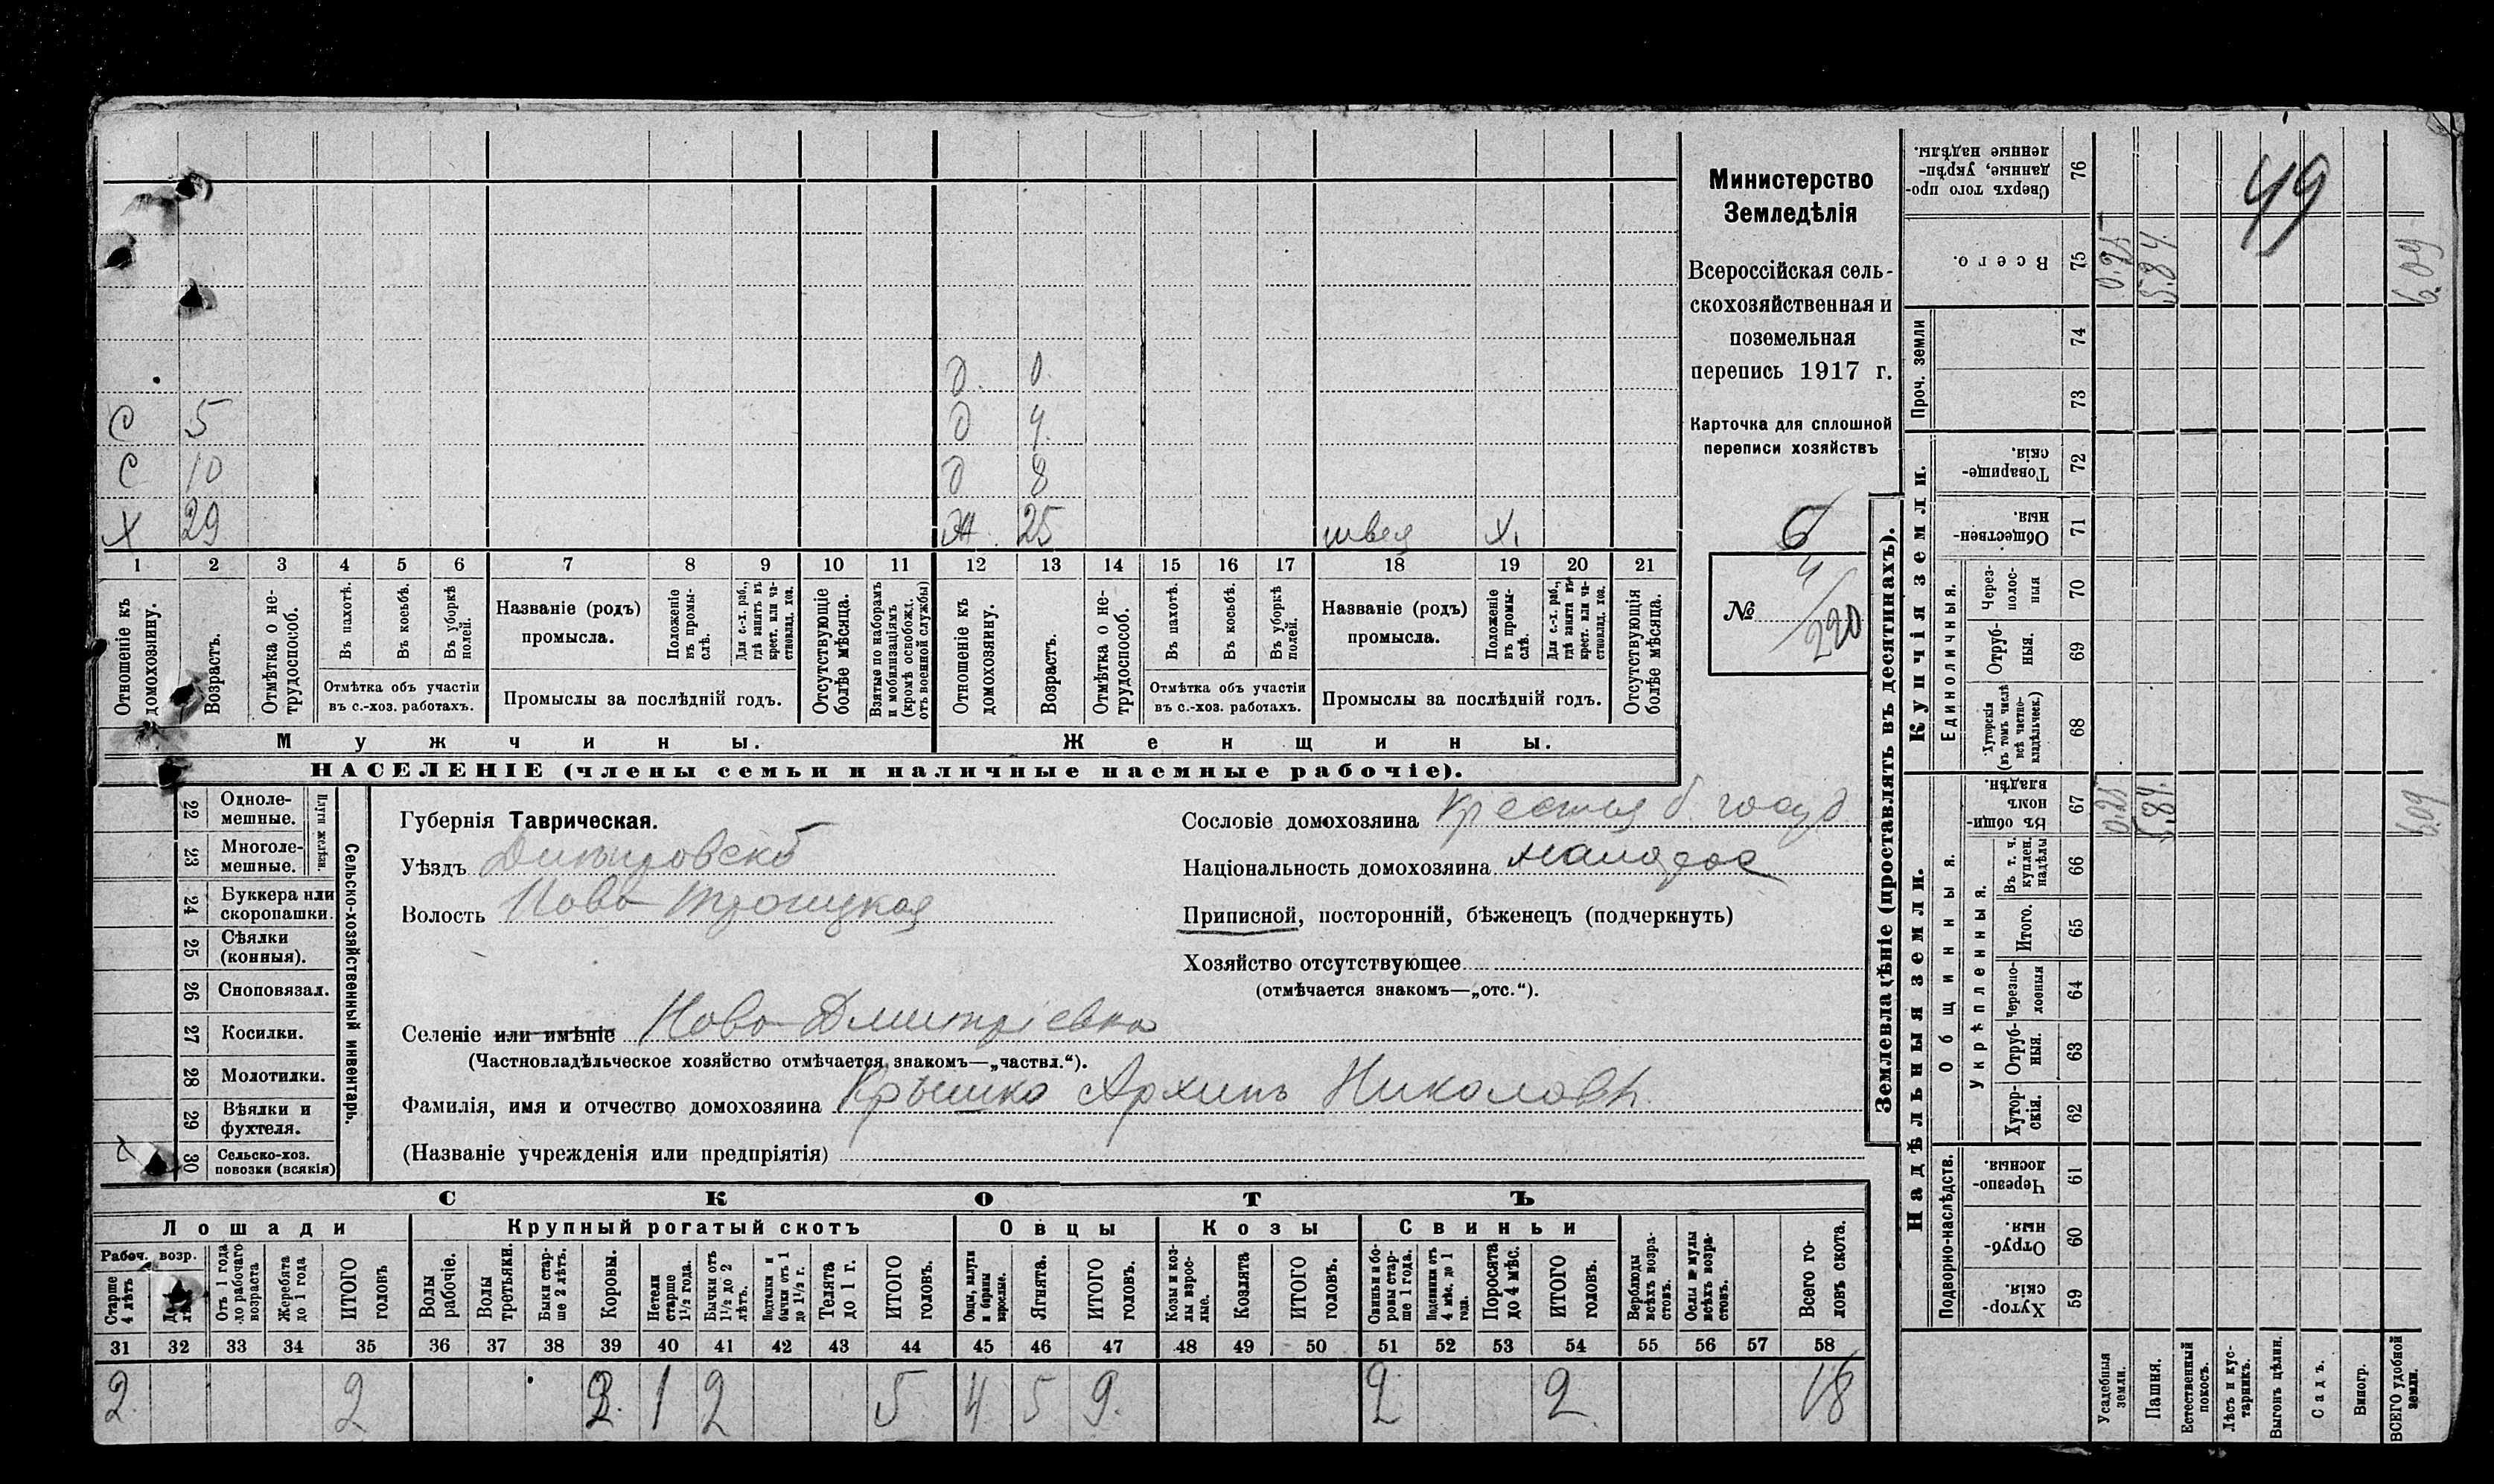 Министерство
Земледѣлія
Всероссійская сель-
скохозяйственная и
поземельная
перепись 1917 г.
Карточка для сплошной
переписи хозяйствъ
6
№ 4/220
49
д. 0.
С 5 д 4.
С 10 д 8
Х 29 Ж. 25 швея Х.
1 2 3 4 5 6 7 8 9 10 11 12 13 14 15 16 17 18 19 20 21
Отношеніе къ домохозяину.
Возрастъ.
Отмѣтка о не-трудоспособ.
Въ пахотѣ.
Въ косьбѣ.
Въ уборкѣ полей.
Отмѣтка объ участіи
въ с.-хоз. работахъ.
Названіе (родъ)
промысла.
Положеніе въ промы-слѣ.
Для с.-х. раб., гдѣ занятъ въ крест. или ча-стновлад. хоз.
Промыслы за послѣдній годъ.
Отсутствующіе болѣе мѣсяца.
Взятые по наборамъ и мобилизаціямъ (кромѣ освобожд. отъ военной службы)
Отношеніе къ домохозяину.
Возрастъ.
Отмѣтка о не-трудоспособ.
Въ пахотѣ.
Въ косьбѣ.
Въ уборкѣ полей.
Отмѣтка объ участіи
въ с.-хоз. работахъ.
Названіе (родъ)
промысла.
Положеніе въ промы-слѣ.
Для с.-х. раб., гдѣ занята въ крест. или ча-стновлад. хоз.
Промыслы за послѣдній годъ.
Отсутствующія болѣе мѣсяца.
Мужчины.
Женщины.
НАСЕЛЕНІЕ (члены семьи и наличные наемные рабочіе).
Сельско-хозяйственный инвентарь.
Плуги желѣзн.
22 Одноле-мешные.
23 Многоле-мешные.
24 Буккера или скоропашки.
25 Сѣялки (конныя).
26 Сноповязал.
27 Косилки.
28 Молотилки.
29 Вѣялки и фухтеля.
30 Сельско-хоз. повозки (всякія)
Губернія Таврическая.
Уѣздъ Днѣпровскій
Волость Ново Троицкая
Селеніе или имѣніе Ново-Дмитріевка
(Частновладѣльческое хозяйство отмѣчается знакомъ—„частвл.“).
Фамилія, имя и отчество домохозяина Крышко Архипъ Николаевъ.
(Названіе учрежденія или предпріятія)
Сословіе домохозяина Крестья б. госуд
Національность домохозяина малорос
Приписной, посторонній, бѣженецъ (подчеркнуть)
Хозяйство отсутствующее
(отмѣчается знакомъ—„отс.“).
СКОТЪ
Лошади
Крупный рогатый скотъ
Овцы
Козы
Свиньи
Рабоч. возр.
Старше 4 лѣтъ
Отъ 1 года до рабочаго возраста
Жеребята до 1 года
ИТОГО головъ
Волы рабочіе.
Волы третьяки.
Быки стар-ше 2 лѣтъ.
Коровы.
Нетели старше 1½ года.
Бычки отъ 1½ до 2 лѣтъ.
Подтелки и бычки отъ 1 до 1½ г.
Телята до 1 г.
ИТОГО головъ.
Овцы, валухи и бараны взрослые.
Ягнята.
ИТОГО головъ.
Козы и коз-лы взрос-лые.
Козлята
ИТОГО головъ.
Свиньи и бо-ровы стар-ше 1 года.
Подсвинки отъ 4 мѣс. до 1 года.
Поросята до 4 мѣс.
ИТОГО головъ.
Верблюды всѣхъ возра-стовъ.
Ослы и мулы всѣхъ возра-стовъ.
Всего го-ловъ скота.
31 32 33 34 35 36 37 38 39 40 41 42 43 44 45 46 47 48 49 50 51 52 53 54 55 56 57 58
2. 2 2. 1 2 5 4 5 9. 2 2. 18
Землевладѣніе (проставлять въ десятинахъ).
Надѣльныя земли.
Купчія земли.
Проч. земли
Подворно-наслѣдств.
Общинныя.
Укрѣпленныя.
Единоличныя.
Хутор-скія. 59
Отруб-ныя. 60
Черезпо-лосныя. 61
Хутор-скія. 62
Отруб-ныя. 63
Черезпо-лосныя 64
Итого. 65
Въ т. ч. куплен. надѣлы 66
Въ общин-номъ владѣн. 67
Хуторскія (въ томъ числѣ всѣ частно-владѣльческ.) 68
Отруб-ныя. 69
Через-полос-ныя 70
Обществен-ныя. 71
Товарище-скія. 72
73
74
Всего. 75
Сверхъ того про-данные, укрѣп-ленные надѣлы. 76
Усадебныя земли.
Пашня.
Естественный покосъ.
Лѣсъ и кус-тарникъ.
Выгонъ цѣлин.
Садъ.
Виногр.
ВСЕГО удобной земли.
0.25 5.84. 6.09
0.25 5.84. 6.09